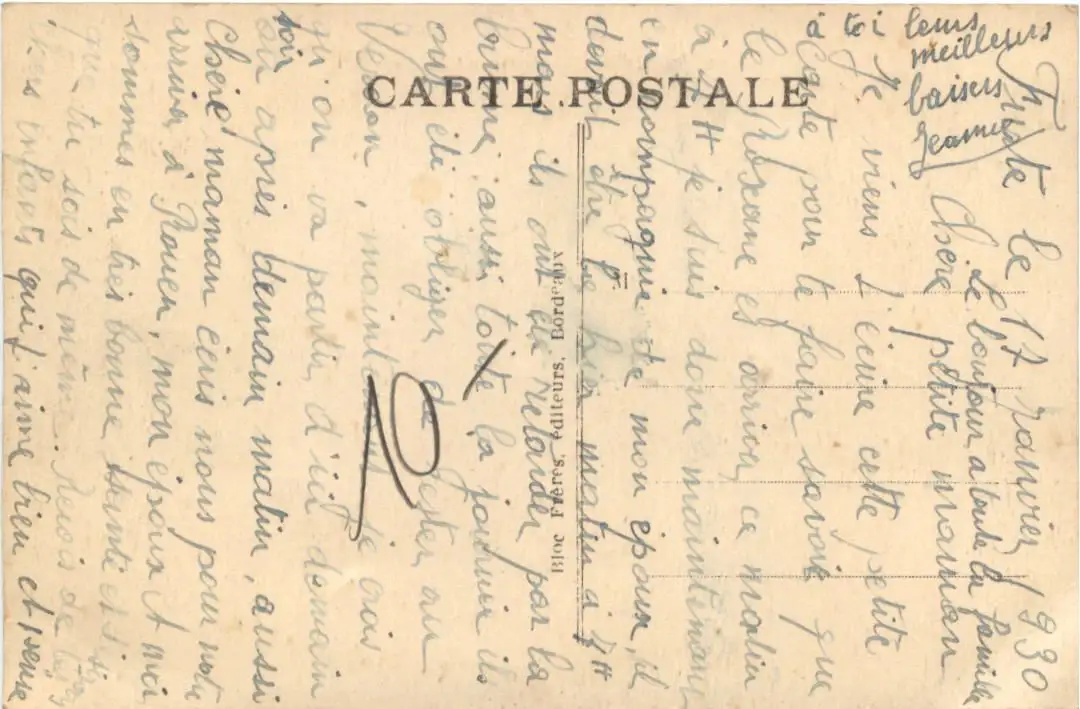 Truste le 17 Janvier 1930
Le bonjour a toute la famille
Chère petite maman
Je viens t'ecrire cette petite
carte pour te faire savoir que
le Roxane es arriver ce matin
à 7H je suis donc maintenant
en compagnie de mon époux, il
devait être là hier matin à 7H
mais ils ont été retarder par la
brume aussi toute la journée ils
ont été obliger de rester au
Verdon, maintenant je crois
qu'on va partir d'ici demain
soir
ou après demain matin, aussi
Chère maman écris nous pour notre
arriver à Rouen, mon époux et moi
sommes en très bonne santé et
que tu sois de même. Reçois de
tes enfants qui t'aime bien et
à toi leurs
meilleurs
baisers
Jeanne
CARTE POSTALE
Bloc Frères, éditeurs, Bordeaux